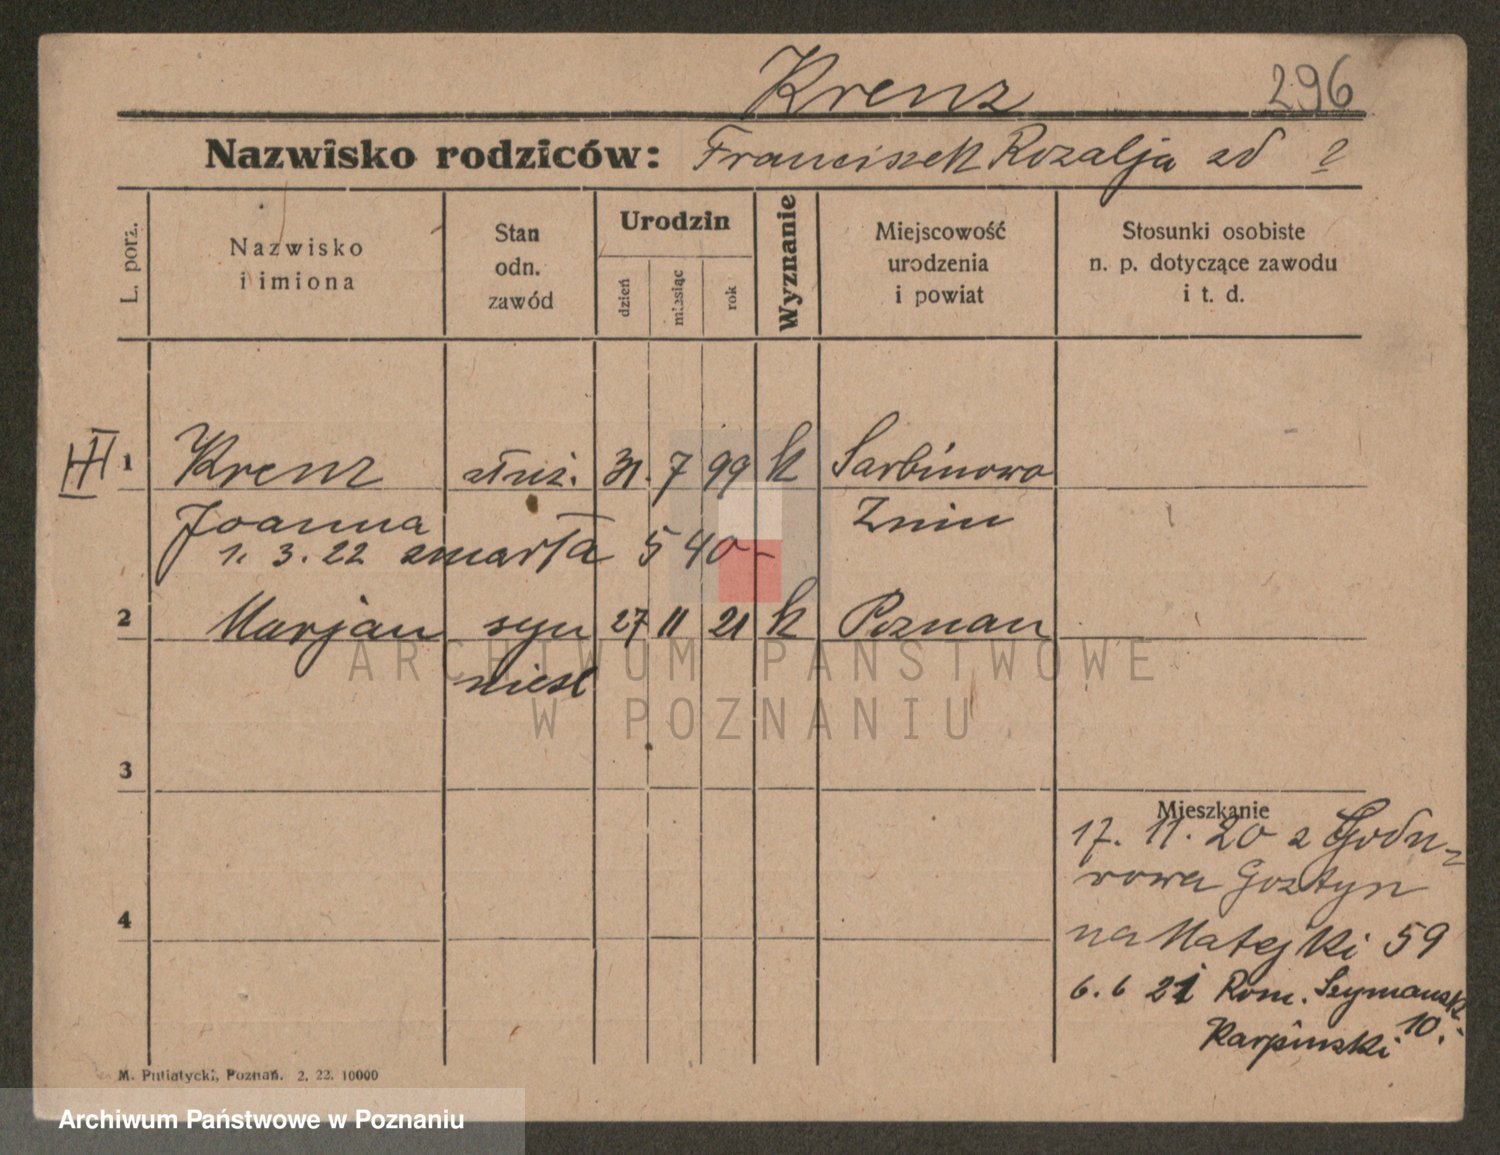 Krenz 296
Nazwisko rodziców: Franciszek Rozalja zd ?
L. porz.
Nazwisko
i imiona
Stan
odn.
zawód
Urodzin
dzień
miesiąc
rok
Wyznanie
Miejscowość
urodzenia
i powiat
Stosunki osobiste
n. p. dotyczące zawodu
i t. d.
III 1 Krenz służ. 31. 7 99 k Sarbinowo
Joanna Żnin
1. 3. 22 zmarła 540-
2 Marjan syn 27 11 21 k Poznan
ARCHIWUM PAŃSTWOWE
nieśl
W POZNANIU
3
Mieszkanie
17. 11. 20 z Godu-
rowa Gostyn
4
na Matejki 59
6. 6 21 Rom. Szymansk-
Karpinski 10.
M. Putiatycki, Poznań. 2. 22. 10000
Archiwum Państwowe w Poznaniu